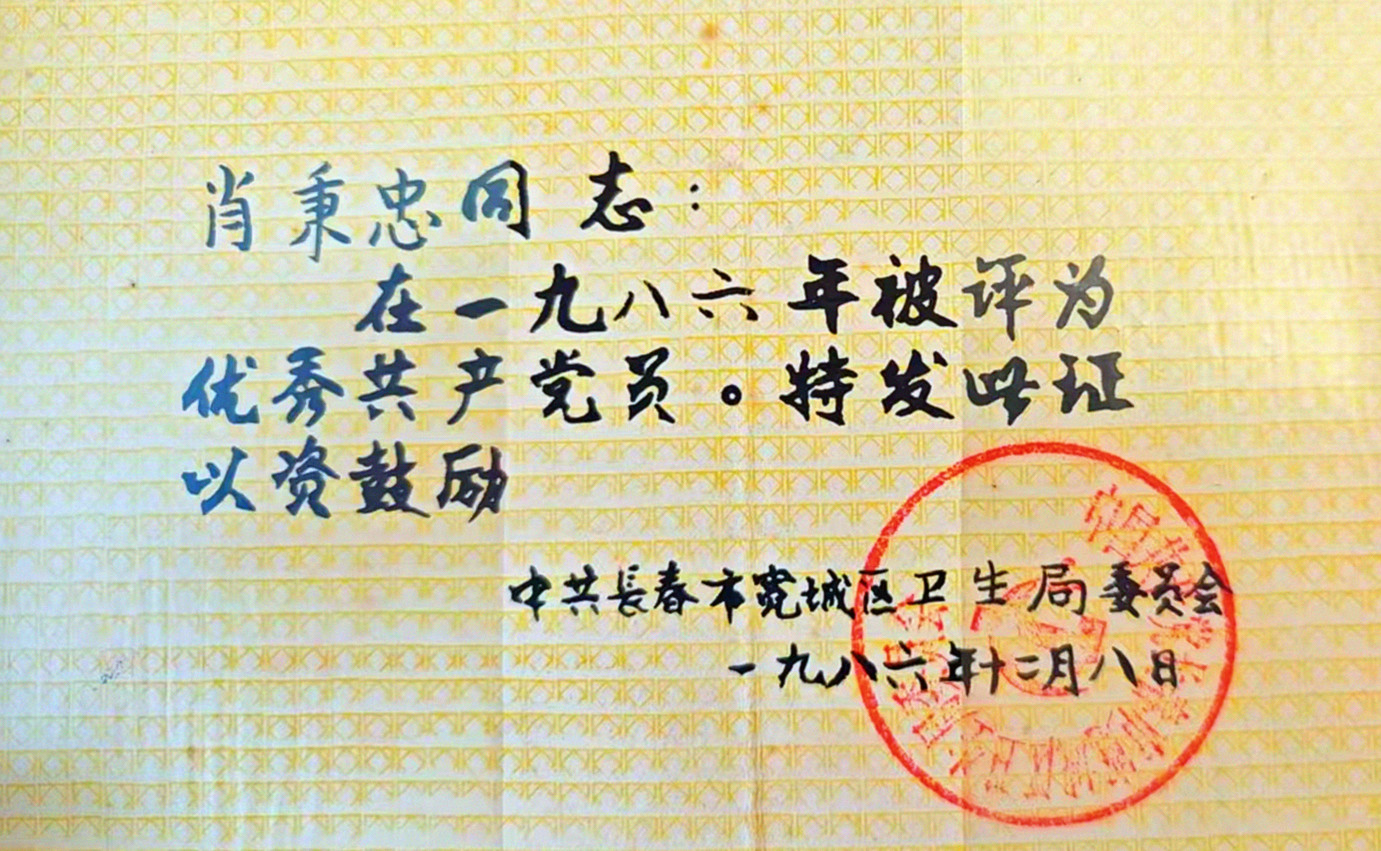 肖秉忠同志：
在一九八六年被评为
优秀共产党员。特发此证
以资鼓励
中共長春市宽城区卫生局委员会
一九八六年十二月八日